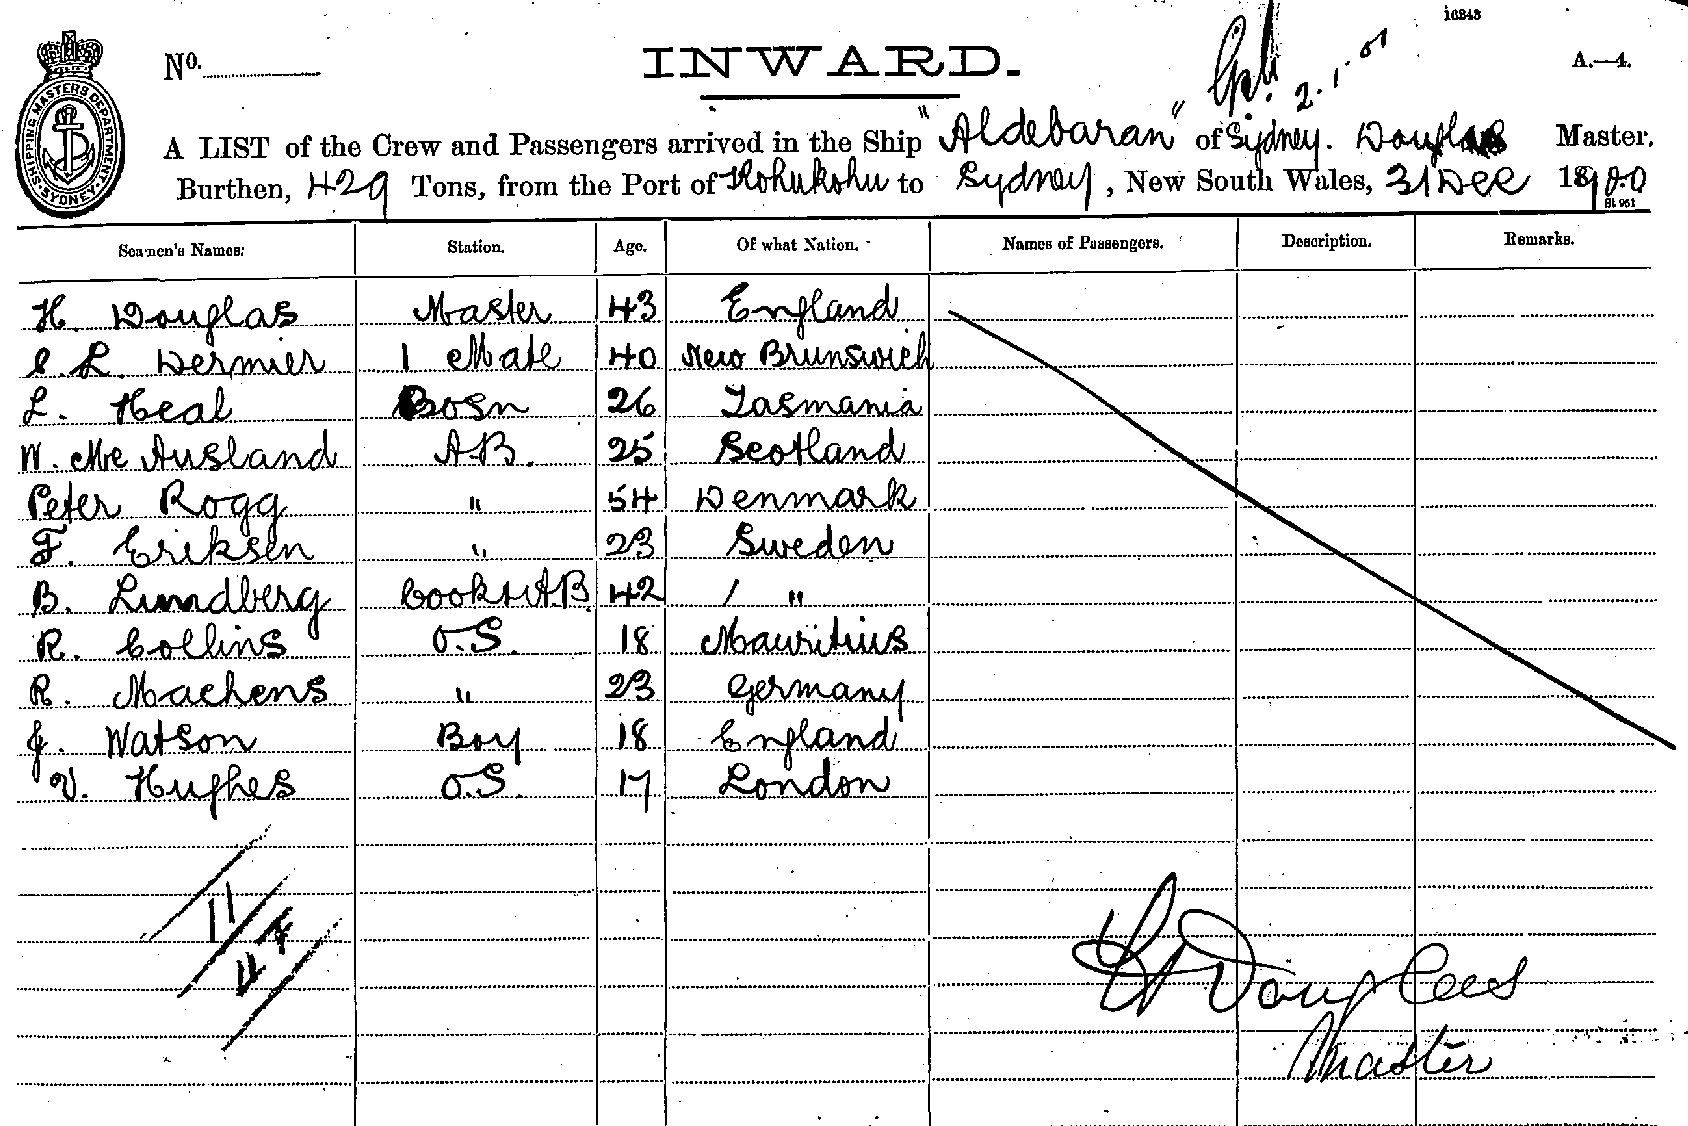 16243
No.
INWARD.
2.1.01
A.—4.
SHIPPING MASTERS DEPARTMENT SYDNEY
A LIST of the Crew and Passengers arrived in the Ship "Aldebaran" of Sydney. Douglas Master.
Burthen, 429 Tons, from the Port of Kohukohu to Sydney, New South Wales, 31 Dec 1900
Seamen's Names. Station. Age. Of what Nation. Names of Passengers. Description. Remarks.
H. Douglas Master 43 England
C L. Dermier 1 Mate 40 New Brunswick
L. Heal Bosn 26 Tasmania
W. Mc Ausland A.B. 25 Scotland
Peter Rogg " 54 Denmark
F. Eriksen " 23 Sweden
B. Lundberg Cook & AB 42 "
R. Collins O.S. 18 Mauritius
R. Machens " 23 Germany
J. Watson Boy 18 England
V. Hughes O.S. 17 London
11
H Douglas
Master